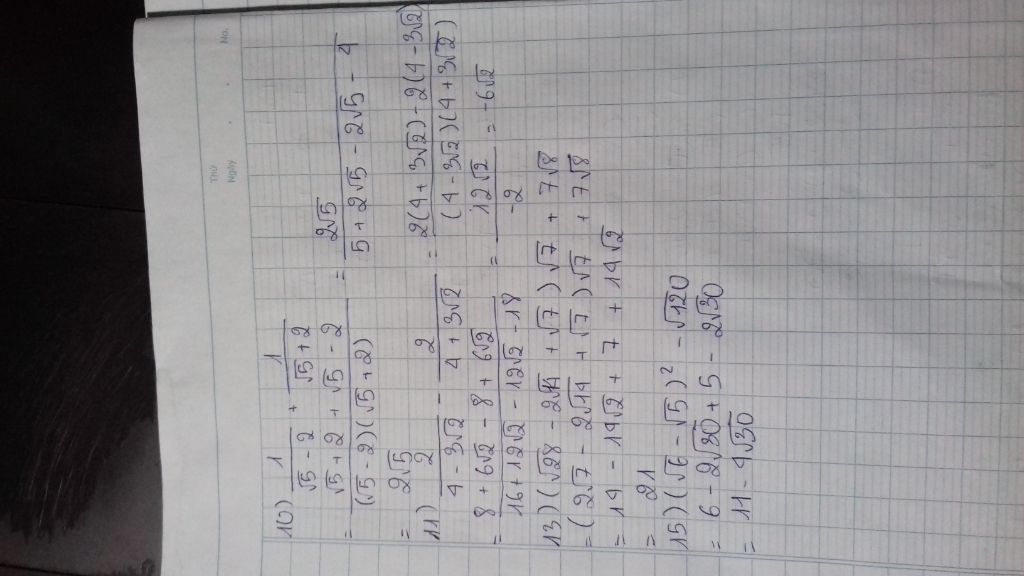 No.
Thứ
Ngày
10) 1/(√5 - 2) + 1/(√5 + 2)
= (√5 + 2 + √5 - 2)/((√5 - 2)(√5 + 2)) = 2√5/(5 + 2√5 - 2√5 - 4)
= 2√5
11) 2/(4 - 3√2) - 2/(4 + 3√2) = (2(4 + 3√2) - 2(4 - 3√2))/((4 - 3√2)(4 + 3√2))
= (8 + 6√2 - 8 + 6√2)/(16 + 12√2 - 12√2 - 18) = 12√2/-2 = -6√2
13) (√28 - 2√14 + √7)√7 + 7√8
= (2√7 - 2√14 + √7)√7 + 7√8
= 14 - 14√2 + 7 + 14√2
= 21
15) (√6 - √5)² - √120
= 6 - 2√30 + 5 - 2√30
= 11 - 4√30